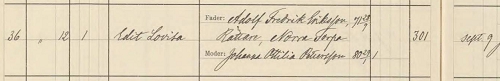 Fader: Adolf Fredrik Eriksson, 71 28/9
36 " 12 1 Edit Lovisa Rättare, Norra Torpa 301 sept. 9
Moder: Johanna Ottilia Petersson 80 29/1